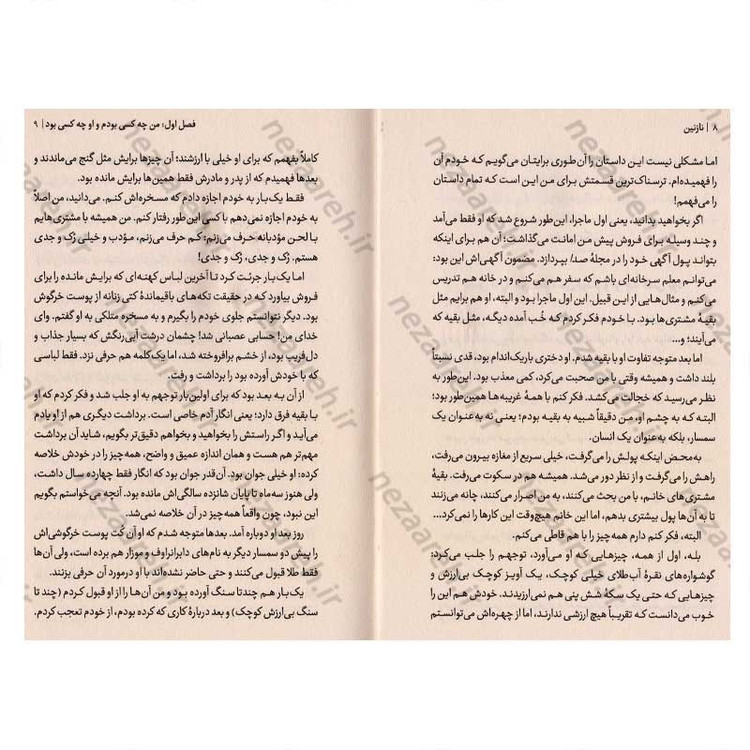 ۸ | نازنین
اما مشکلی نیست این داستان را آن‌طوری برایتان می‌گویم که خودم آن
را فهمیده‌ام. ترسناک‌ترین قسمتش برای من این است که تمام داستان
را می‌فهمم!
اگر بخواهید بدانید، یعنی اول ماجرا، این‌طور شروع شد که او فقط می‌آمد
و چند وسیله برای فروش پیش من امانت می‌گذاشت؛ آن هم برای اینکه
بتواند پول آگهی خود را در مجلهٔ صدا بپردازد. مضمون آگهی‌اش این بود:
می‌توانم معلم سرخانه‌ای باشم که سفر هم می‌کنم و در خانه هم تدریس
می‌کنیم و مثال‌هایی از این قبیل. این اول ماجرا بود و البته، او هم برایم مثل
بقیهٔ مشتری‌ها بود. با خودم فکر کردم که خُب آمده دیگه، مثل بقیه که
می‌آیند؛ و...
اما بعد متوجه تفاوت او با بقیه شدم. او دختری باریک‌اندام بود، قدی نسبتاً
بلند داشت و همیشه وقتی با من صحبت می‌کرد، کمی معذب بود. این‌طور به
نظر می‌رسید که خجالت می‌کشد. فکر کنم با همهٔ غریبه‌ها همین‌طور بود؛
البتـه کـه به چشم او، من دقیقاً شبیه به بقیه بودم؛ یعنی نه به‌عنوان یک
سمسار، بلکه به‌عنوان یک انسان.
به‌محض اینکه پولش را می‌گرفت، خیلی سریع از مغازه بیرون می‌رفت،
راهش را می‌گرفت و از نظر دور می‌شد. همیشه هم در سکوت می‌رفت. بقیهٔ
مشتری‌های خانم، با من بحث می‌کنند، به من اصرار می‌کنند، چانه می‌زنند
تا به آن‌ها پول بیشتری بدهم، اما این خانم هیچ‌وقت این کارها را نمی‌کرد...
البته، فکر کنم دارم همه‌چیز را با هم قاطی می‌کنم.
بله، اول از همه، چیزهایی که او می‌آورد، توجهم را جلب می‌کرد:
گوشواره‌های نقرهٔ آب‌طلای خیلی کوچک، یک آویز کوچک بی‌ارزش و
چیزهایی که حتی یک سکهٔ شش پنی هم نمی‌ارزیدند. خودش هم این را
خوب می‌دانست که تقریباً هیچ ارزشی ندارند، اما از چهره‌اش می‌توانستم
فصل اول: من چه کسی بودم و او چه کسی بود | ۹
کاملاً بفهمم که برای او خیلی با ارزشند؛ آن چیزها برایش مثل گنج می‌ماندند و
بعدها فهمیدم که از پدر و مادرش فقط همین‌ها برایش مانده بود.
فقط یک‌بار به خودم اجازه دادم که مسخره‌اش کنم. می‌دانید، من اصلاً
به خودم اجازه نمی‌دهم با کسی این‌طور رفتار کنم. من همیشه با مشتری‌هایم
با لحن مؤدبانه حرف می‌زنم؛ کم حرف می‌زنم، مؤدب و خیلی رُک و جدی
هستم. رُک و جدی، رُک و جدی!
اما یک‌بار جرئت کرد تا آخرین لباس کهنه‌ای که برایش مانده را برای
فروش بیاورد که در حقیقت تکه‌های باقیماندهٔ کتی زنانه از پوست خرگوش
بود. دیگر نتوانستم جلوی خودم را بگیرم و به مسخره متلکی به او گفتم. وای
خدای من! حسابی عصبانی شد! چشمان درشت آبی‌رنگش که بسیار جذاب و
دل‌فریب بود، از خشم برافروخته شد، اما یک‌کلمه هم حرفی نزد. فقط لباسی
که با خودش آورده بود را برداشت و رفت.
از آن به بعد بود که برای اولین‌بار توجهم به او جلب شد و فکر کردم که او
با بقیه فرق دارد؛ یعنی انگار آدم خاصی است. برداشت دیگری هم از او یادم
می‌آید و اگر راستش را بخواهید و بخواهم دقیق‌تر بگویم، شاید آن برداشت
مهم‌تر هم هست و همان اندازه عمیق و واضح، همه‌چیز را در خودش خلاصه
کرده: او خیلی جوان بود. آن‌قدر جوان بود که انگار فقط چهارده سال داشت،
ولی هنوز سه‌ماه تا پایان شانزده سالگی‌اش مانده بود. آنچه می‌خواستم بگویم
این نبود، چون واقعاً همه‌چیز در آن خلاصه نمی‌شد.
روز بعد او دوباره آمد. بعدها متوجه شدم که او آن کُت پوست خرگوشی‌اش
را پیش دو سمسار دیگر به نام‌های دابرانراوف و موزار هم برده است، ولی آن‌ها
فقط طلا قبول می‌کنند و حتی حاضر نشده‌اند با او درمورد آن حرفی بزنند.
یک‌بار هم چندتا سنگ آورده بود و من آن‌ها را از او قبول کردم (چند تا
سنگ بی‌ارزش کوچک) و بعد دربارهٔ کاری که کرده بودم، از خودم تعجب کردم.
nezaareh.ir
nezaareh.ir
nezaareh.ir
nezaareh.ir